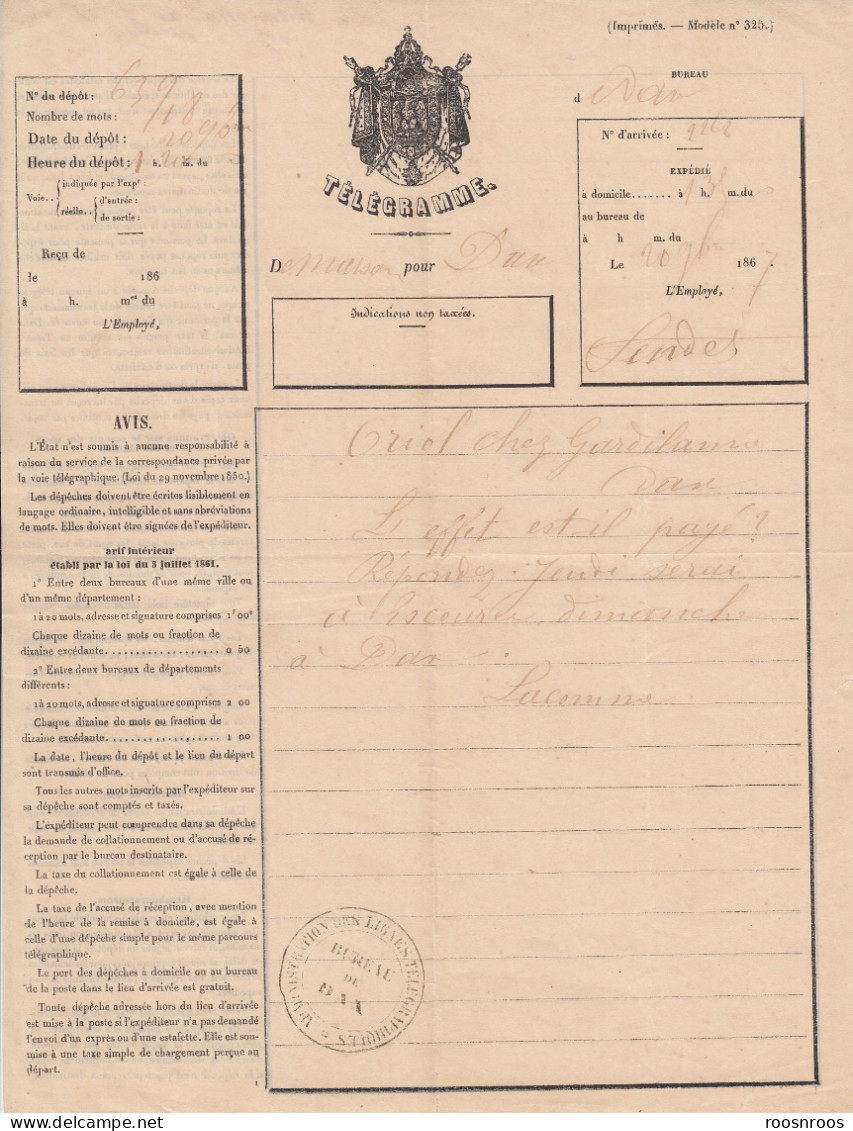 (Imprimés. — Modèle n° 325.)
N° du dépôt : 639
Nombre de mots : 18
Date du dépôt : 20 9bre
Heure du dépôt : 1 h. m. du
Voie.. indiquée par l'expr :
réelle.. d'entrée :
de sortie :
Reçu de
le 186
à h. mes du
L'Employé,
TÉLÉGRAMME.
De pour Dax
Indications non taxées.
BUREAU
d Dax
N° d'arrivée :
EXPÉDIÉ
à domicile....... à h. m. du
au bureau de
à h m. du
Le 20 9bre 1867.
L'Employé,
AVIS.
L'État n'est soumis à aucune responsabilité à
raison du service de la correspondance privée par
la voie télégraphique. (Loi du 29 novembre 1850.)
Les dépêches doivent être écrites lisiblement en
langage ordinaire, intelligible et sans abréviations
de mots. Elles doivent être signées de l'expéditeur.
arif intérieur
établi par la loi du 3 juillet 1861.
1° Entre deux bureaux d'une même ville ou
d'un même département :
1 à 20 mots, adresse et signature comprises 1f 00c
Chaque dizaine de mots ou fraction de
dizaine excédante.................. 0 50
2° Entre deux bureaux de départements
différents :
1 à 20 mots, adresse et signature comprises 2 00
Chaque dizaine de mots ou fraction de
dizaine excédante.................. 1 00
La date, l'heure du dépôt et le lieu du départ
sont transmis d'office.
Tous les autres mots inscrits par l'expéditeur sur
sa dépêche sont comptés et taxés.
L'expéditeur peut comprendre dans sa dépêche
la demande de collationnement ou d'accusé de ré-
ception par le bureau destinataire.
La taxe du collationnement est égale à celle de
la dépêche.
La taxe de l'accusé de réception, avec mention
de l'heure de la remise à domicile, est égale à
celle d'une dépêche simple pour le même parcours
télégraphique.
Le port des dépêches à domicile ou au bureau
de la poste dans le lieu d'arrivée est gratuit.
Toute dépêche adressée hors du lieu d'arrivée
est mise à la poste si l'expéditeur n'a pas demandé
l'envoi d'un exprès ou d'une estafette. Elle est sou-
mise à une taxe simple de chargement perçue au
départ.
Oriol chez Gardilanne
Dax
L'effet est il payé ?
Répondez. Jeudi serai
à dimanche
à Dax.
Lacomme
ADMINISTRATION DES LIGNES TÉLÉGRAPHIQUES
BUREAU
DE
DAX
roosnroos